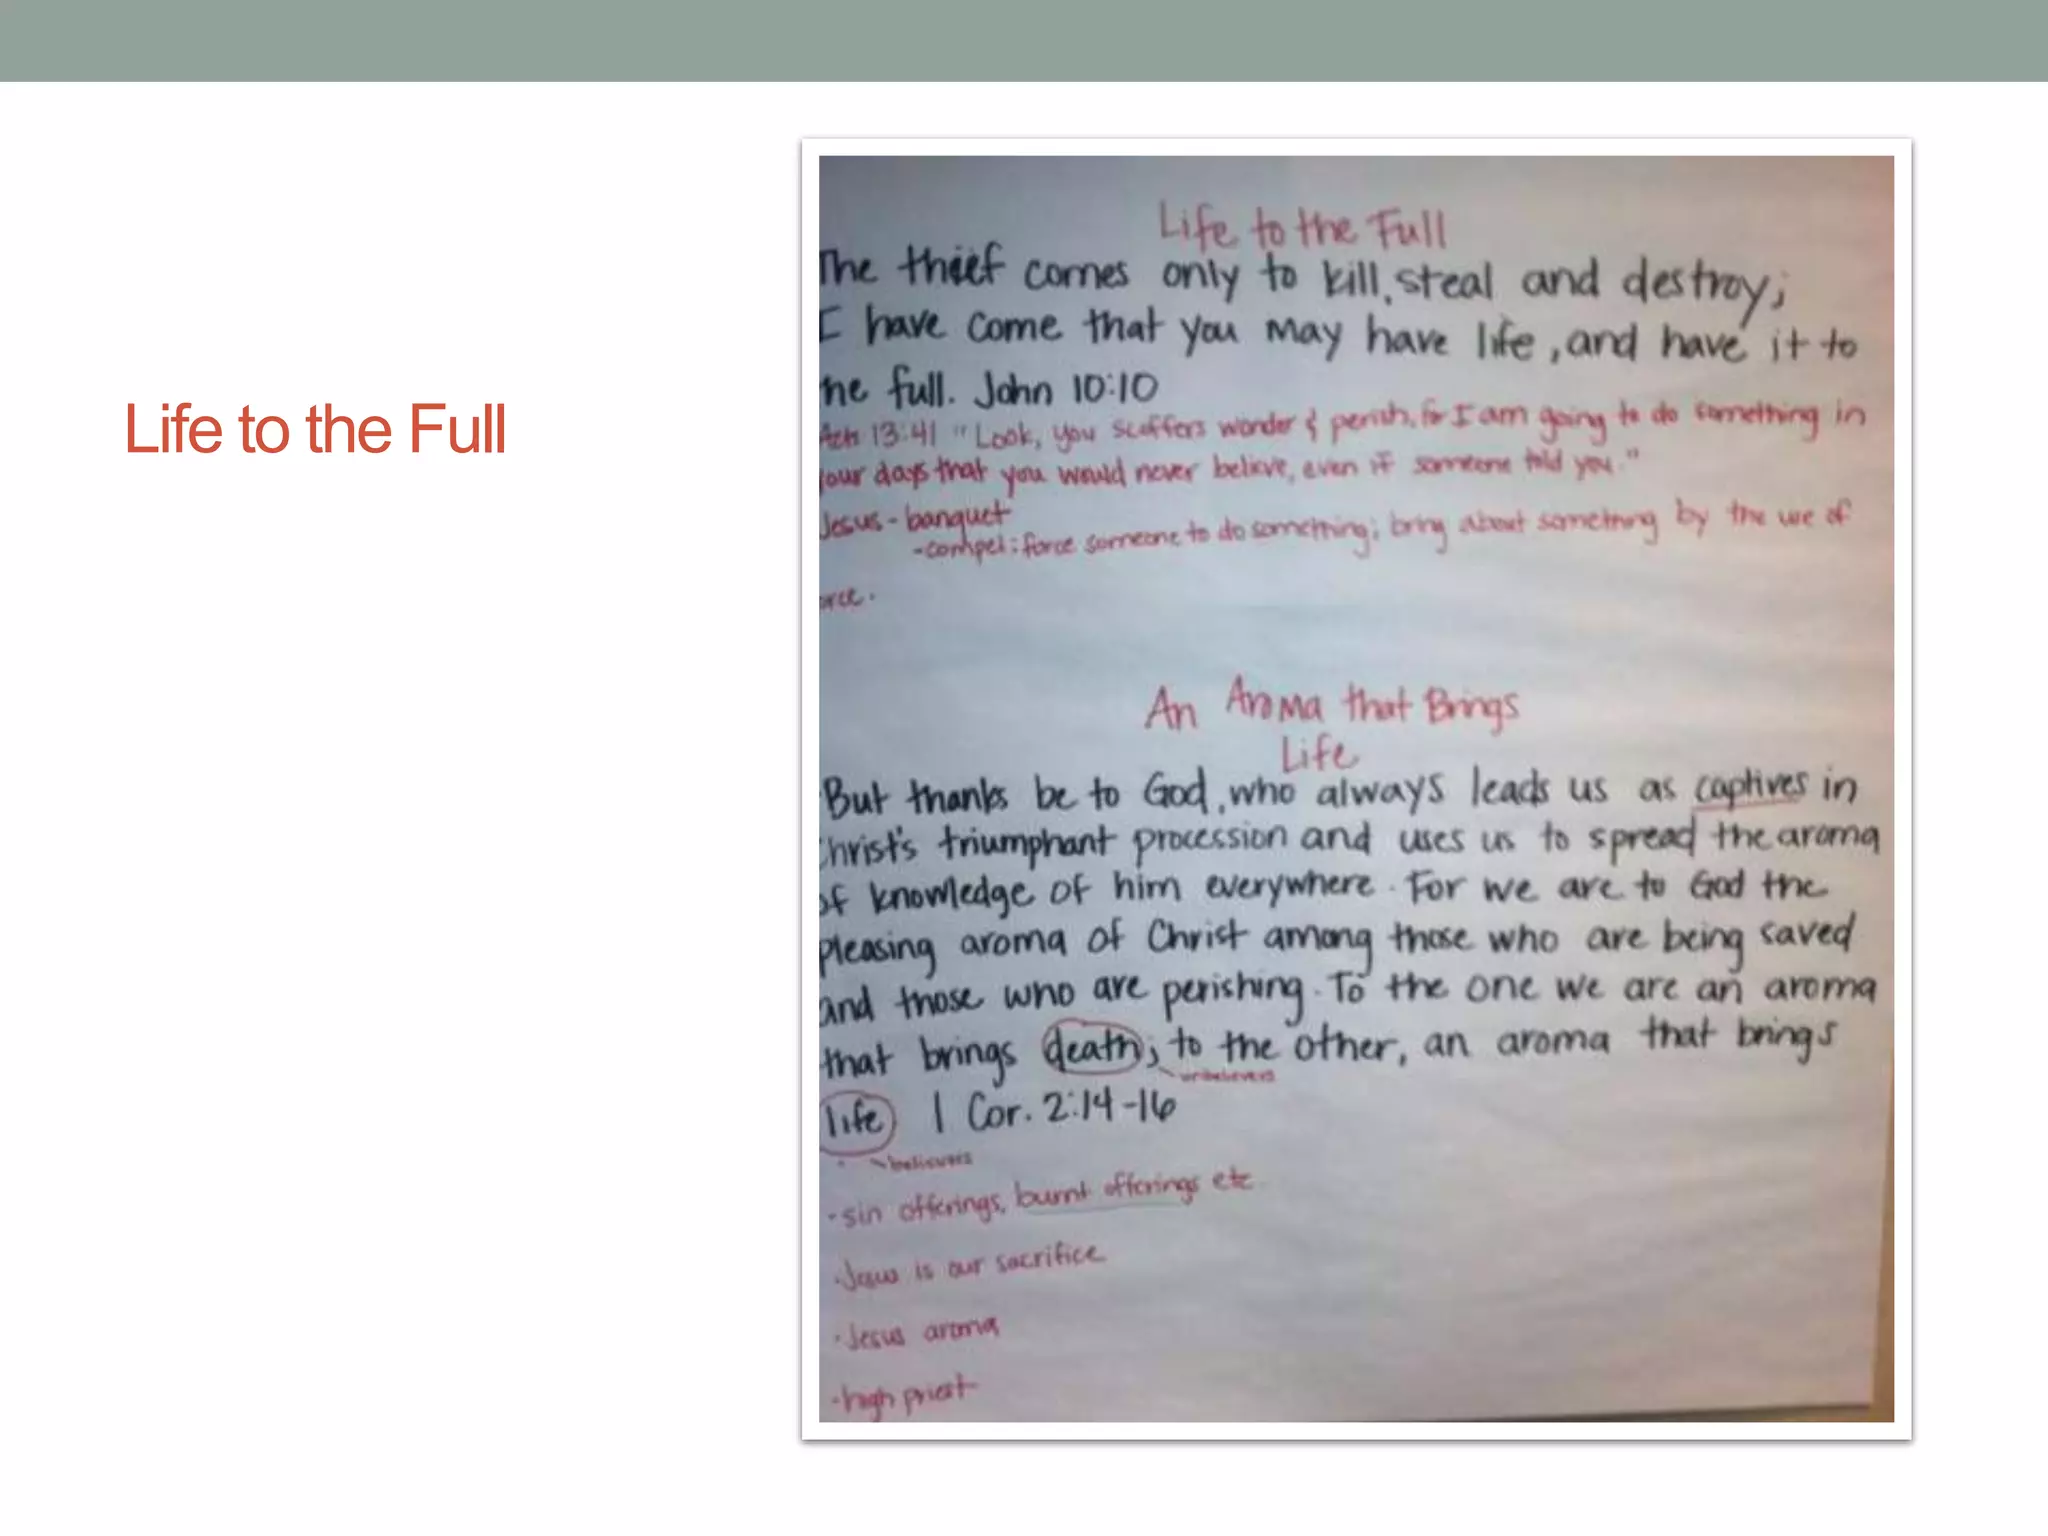 Life to the Full
Life to the Full
The thief comes only to kill, steal and destroy;
I have come that you may have life, and have it to
he full. John 10:10
Acts 13:41 "Look, you scoffers wonder & perish, for I am going to do something in
your days that you would never believe, even if someone told you."
Jesus - banquet
- compel: force someone to do something; bring about something by the use of
orce.
An Aroma that Brings
Life
But thanks be to God, who always leads us as captives in
Christ's triumphant procession and uses us to spread the aroma
of knowledge of him everywhere. For we are to God the
pleasing aroma of Christ among those who are being saved
and those who are perishing. To the one we are an aroma
that brings death; to the other, an aroma that brings
unbelievers
life 1 Cor. 2:14-16
believers
· sin offerings, burnt offerings etc
· Jesus is our sacrifice
· Jesus aroma
· high priest